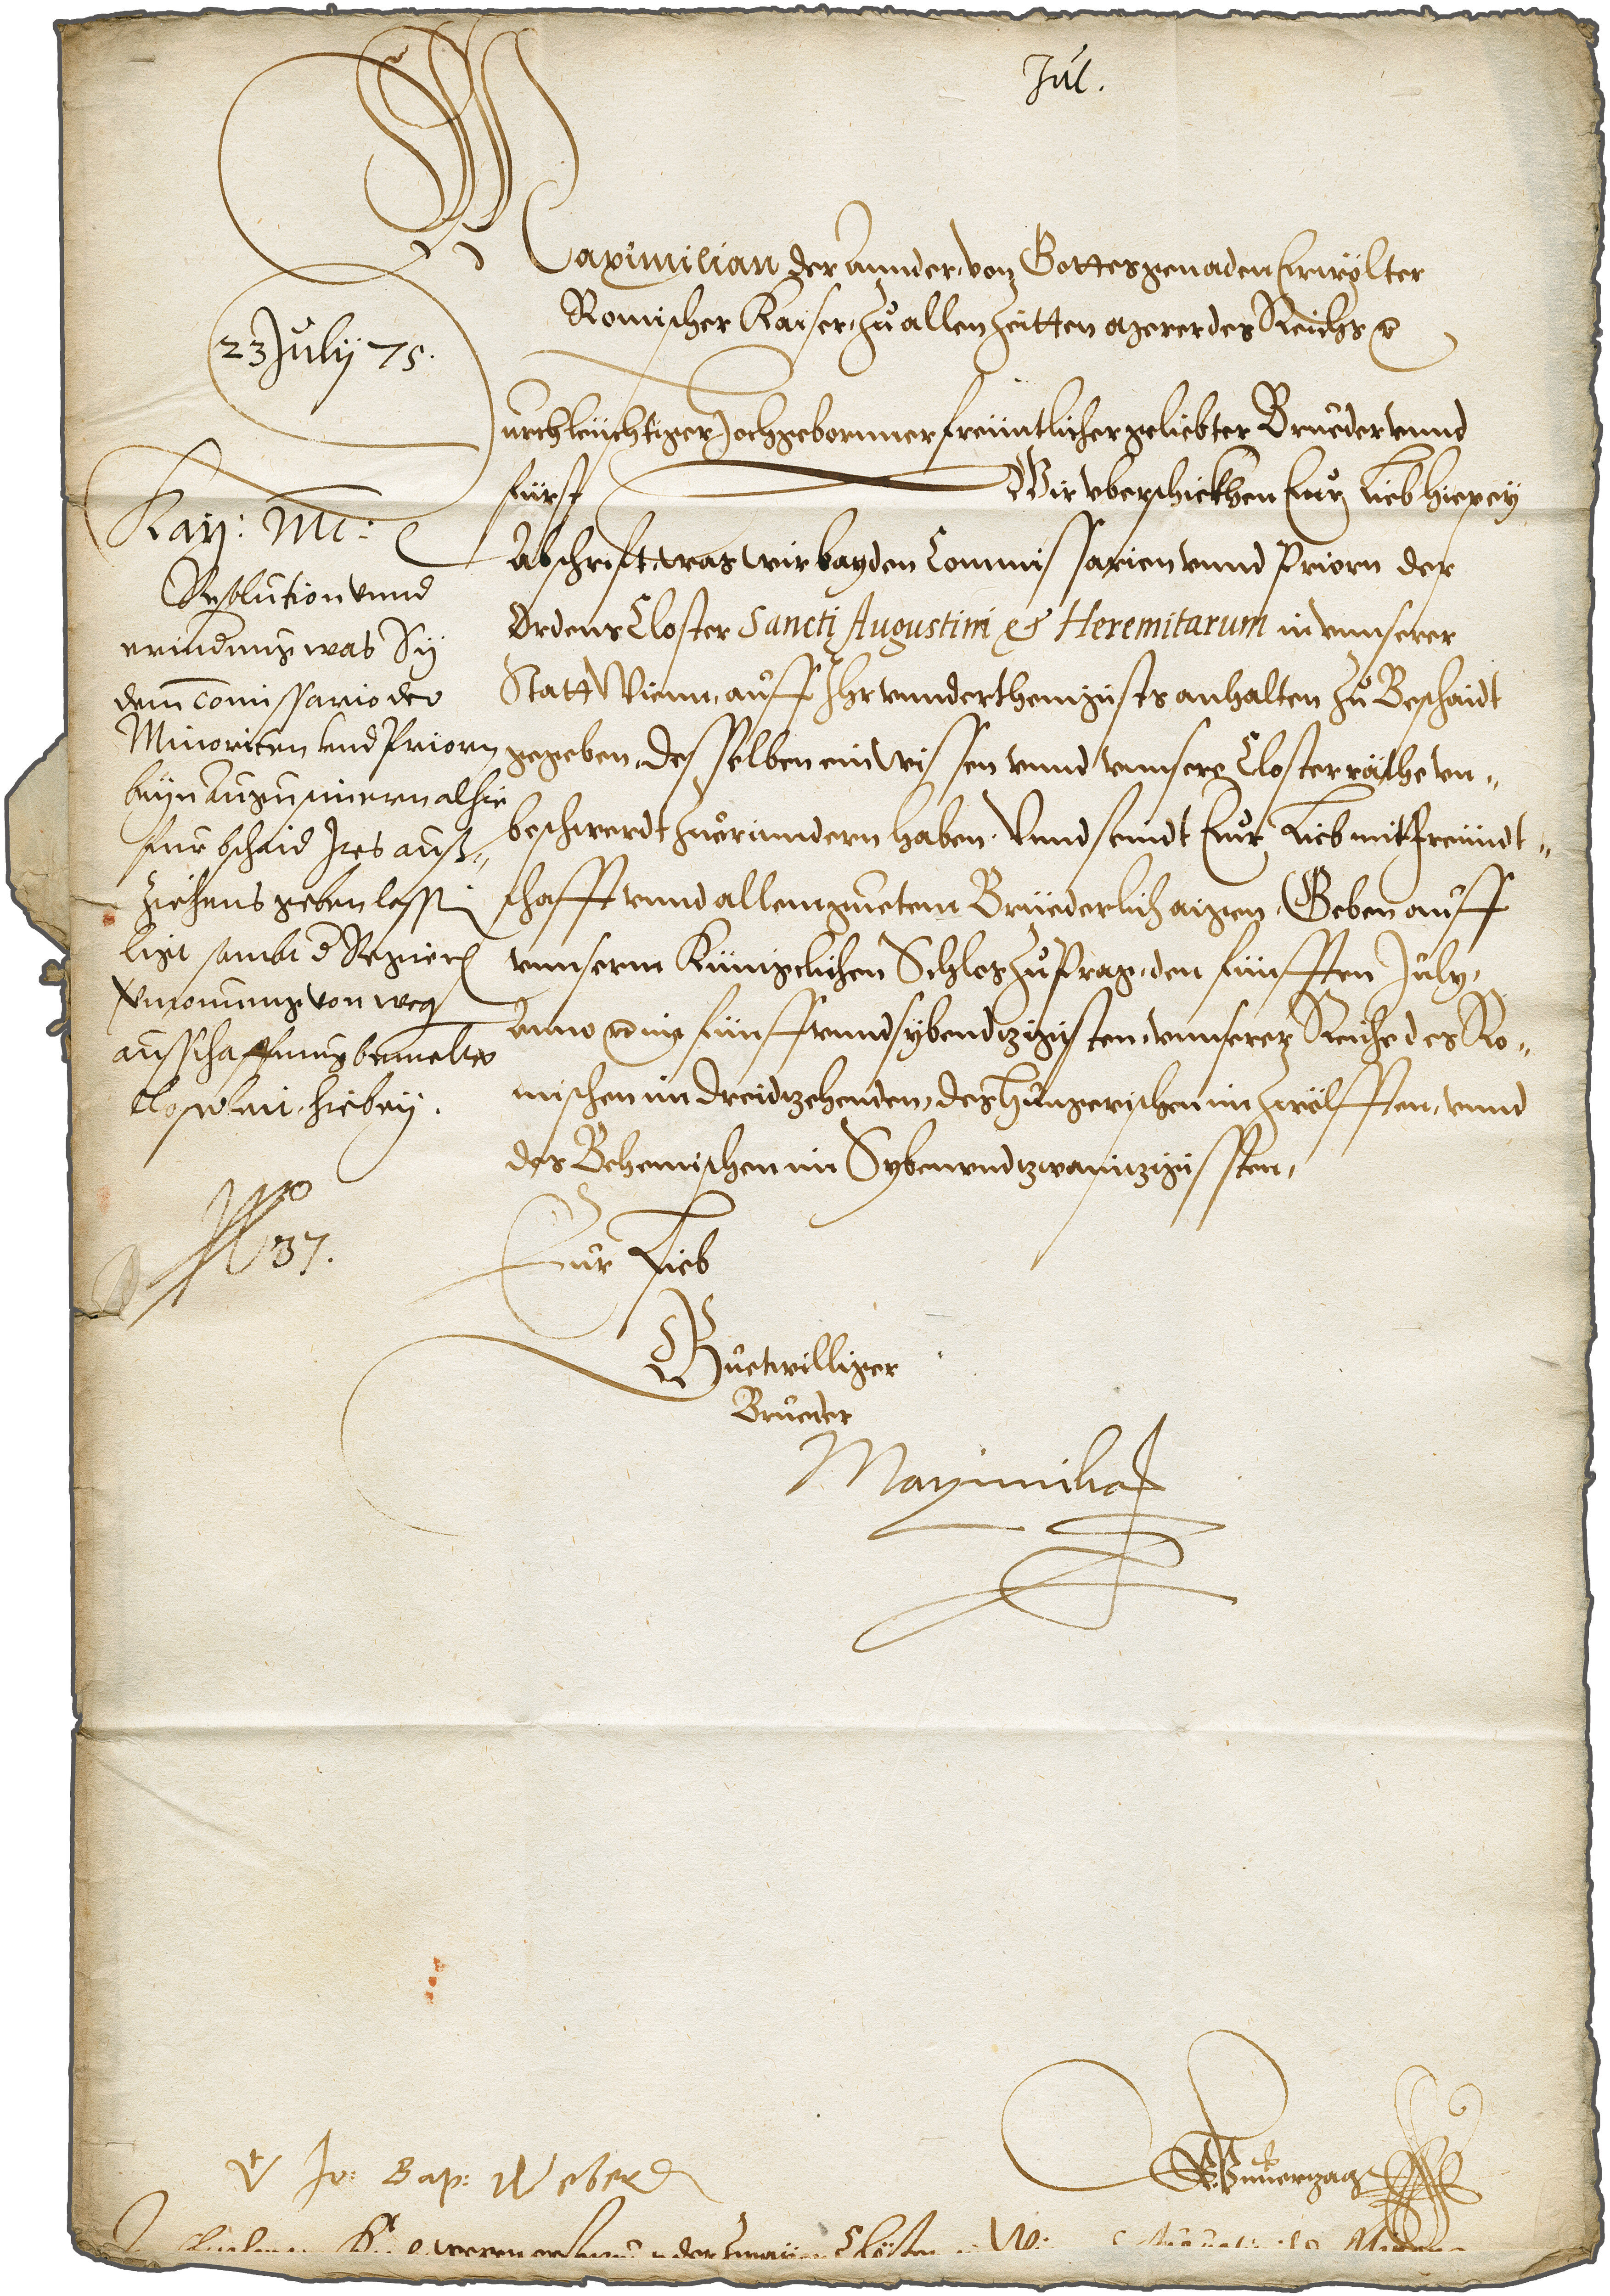 Jul.
Maximilian der Annder, von Gottes genaden Erwölter
Romischer Kaiser, zu allen Zeitten merer des Reichs
23 July 75.
Durchleüchtiger Hochgebornner freüntlicher geliebter Brueder vnnd
Fürst Wir vberschickhen Eur Lieb hiebey
Abschrifft, was wir bayden Commissarien vnnd Priorn der
Ordens Closter Sancti Augustini & Heremitarum in vnnserer
Statt Wienn, auff Ihr vnnderthenigists anhalten zu Beschaidt
gegeben, desselben ein wissen vnnd vnnsere Closter räthe zu
beschwerdt zuerinndern haben. Vnnd seindt Eur Lieb mit freündt-
schafft vnnd allem guetem Brüederlich aigen, Geben auff
vnnserm Künigclichen Schlos zu Prag, den fünfften July,
Anno im fünffvnndsybendtzigisten, vnnserer Reiche des Ro-
mischen im dreidtzehenden, des Hungerischen im zwölfften, vnnd
des Behemischen im Sybenvndtzwaintzigissten,
Kay: Mt:
Resolution vnnd
erinderung was Sy
dem Comissario der
Minoriten vnd Priorn
beyn Augustinern alhie
fur bschaid Ires auß-
ziehens geben lassen
ligt sambt d Regierung
von wegen
ausschaffung bemelter
hiebey.
No 37.
Eur Lieb
Guetwilliger
Brueder
Maximilian
Vt Jo: Bap: Weber D
Vnuerzagt